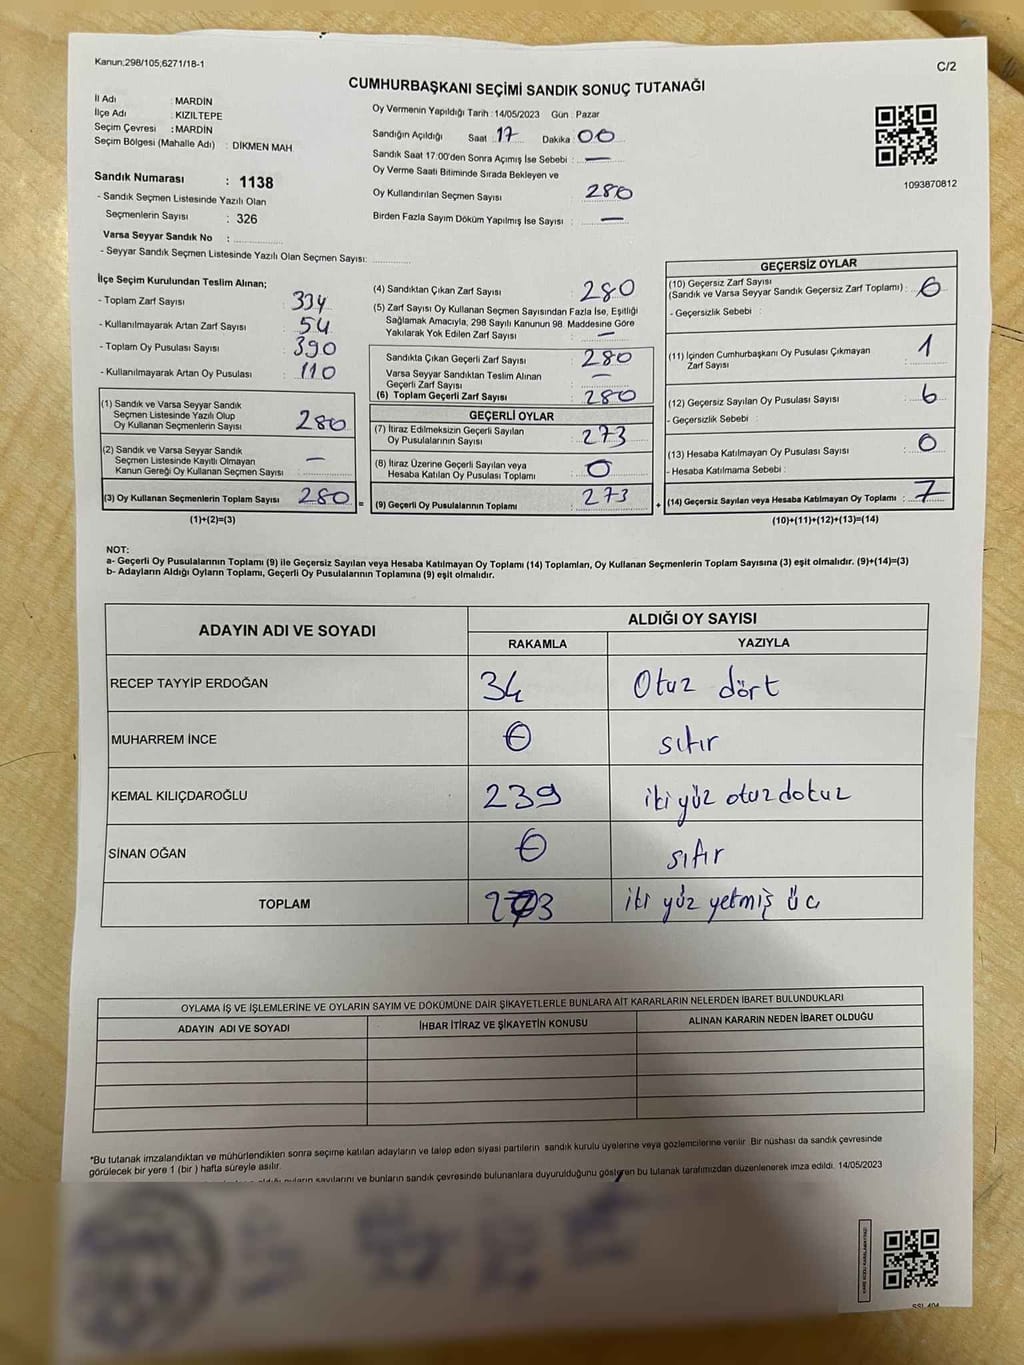 Kanun;298/105,6271/18-1
C/2
CUMHURBAŞKANI SEÇİMİ SANDIK SONUÇ TUTANAĞI
İl Adı : MARDİN
İlçe Adı : KIZILTEPE
Seçim Çevresi : MARDİN
Seçim Bölgesi (Mahalle Adı) : DİKMEN MAH
Sandık Numarası : 1138
- Sandık Seçmen Listesinde Yazılı Olan
Seçmenlerin Sayısı : 326
Varsa Seyyar Sandık No :
- Seyyar Sandık Seçmen Listesinde Yazılı Olan Seçmen Sayısı:
Oy Vermenin Yapıldığı Tarih : 14/05/2023 Gün : Pazar
Sandığın Açıldığı Saat : 17 Dakika : 00
Sandık Saat 17:00'den Sonra Açımış İse Sebebi : —
Oy Verme Saati Bitiminde Sırada Bekleyen ve
Oy Kullandırılan Seçmen Sayısı 280
Birden Fazla Sayım Döküm Yapılmış İse Sayısı : —
1093870812
İlçe Seçim Kurulundan Teslim Alınan;
- Toplam Zarf Sayısı 334
- Kullanılmayarak Artan Zarf Sayısı : 54
- Toplam Oy Pusulası Sayısı : 390
- Kullanılmayarak Artan Oy Pusulası : 110
(1) Sandık ve Varsa Seyyar Sandık
Seçmen Listesinde Yazılı Olup
Oy Kullanan Seçmenlerin Sayısı 280
(2) Sandık ve Varsa Seyyar Sandık
Seçmen Listesinde Kayıtlı Olmayan
Kanun Gereği Oy Kullanan Seçmen Sayısı : —
(3) Oy Kullanan Seçmenlerin Toplam Sayısı 280 =
(1)+(2)=(3)
(4) Sandıktan Çıkan Zarf Sayısı : 280
(5) Zarf Sayısı Oy Kullanan Seçmen Sayısından Fazla İse, Eşitliği
Sağlamak Amacıyla, 298 Sayılı Kanunun 98 Maddesine Göre
Yakılarak Yok Edilen Zarf Sayısı : —
Sandıkta Çıkan Geçerli Zarf Sayısı : 280
Varsa Seyyar Sandıktan Teslim Alınan
Geçerli Zarf Sayısı : —
(6) Toplam Geçerli Zarf Sayısı : 280
GEÇERLİ OYLAR
(7) İtiraz Edilmeksizin Geçerli Sayılan
Oy Pusulalarının Sayısı : 273
(8) İtiraz Üzerine Geçerli Sayılan veya
Hesaba Katılan Oy Pusulası Toplamı : 0
(9) Geçerli Oy Pusulalarının Toplamı : 273 +
GEÇERSİZ OYLAR
(10) Geçersiz Zarf Sayısı
(Sandık ve Varsa Seyyar Sandık Geçersiz Zarf Toplamı) : 0
- Geçersizlik Sebebi :
(11) İçinden Cumhurbaşkanı Oy Pusulası Çıkmayan
Zarf Sayısı : 1
(12) Geçersiz Sayılan Oy Pusulası Sayısı : 6
- Geçersizlik Sebebi :
(13) Hesaba Katılmayan Oy Pusulası Sayısı : 0
- Hesaba Katılmama Sebebi :
(14) Geçersiz Sayılan veya Hesaba Katılmayan Oy Toplamı : 7
(10)+(11)+(12)+(13)=(14)
NOT:
a- Geçerli Oy Pusulalarının Toplamı (9) ile Geçersiz Sayılan veya Hesaba Katılmayan Oy Toplamı (14) Toplamları, Oy Kullanan Seçmenlerin Toplam Sayısına (3) eşit olmalıdır. (9)+(14)=(3)
b- Adayların Aldığı Oyların Toplamı, Geçerli Oy Pusulalarının Toplamına (9) eşit olmalıdır.
ADAYIN ADI VE SOYADI ALDIĞI OY SAYISI
RAKAMLA YAZIYLA
RECEP TAYYİP ERDOĞAN 34 Otuz dört
MUHARREM İNCE 0 sıfır
KEMAL KILIÇDAROĞLU 239 iki yüz otuz dokuz
SİNAN OĞAN 0 sıfır
TOPLAM 273 iki yüz yetmiş üç
OYLAMA İŞ VE İŞLEMLERİNE VE OYLARIN SAYIM VE DÖKÜMÜNE DAİR ŞİKAYETLERLE BUNLARA AİT KARARLARIN NELERDEN İBARET BULUNDUKLARI
ADAYIN ADI VE SOYADI İHBAR İTİRAZ VE ŞİKAYETİN KONUSU ALINAN KARARIN NEDEN İBARET OLDUĞU
*Bu tutanak imzalandıktan ve mühürlendikten sonra seçime katılan adayların ve talep eden siyasi partilerin sandık kurulu üyelerine veya gözlemcilerine verilir. Bir nüshası da sandık çevresinde
görülecek bir yere 1 (bir) hafta süreyle asılır.
sayılarını ve bunların sandık çevresinde bulunanlara duyurulduğunu gösteren bu tutanak tarafımızdan düzenlenerek imza edildi. 14/05/2023